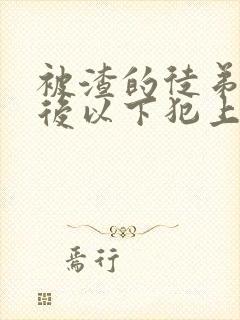 被渣的徒弟
後以下犯上
焉行